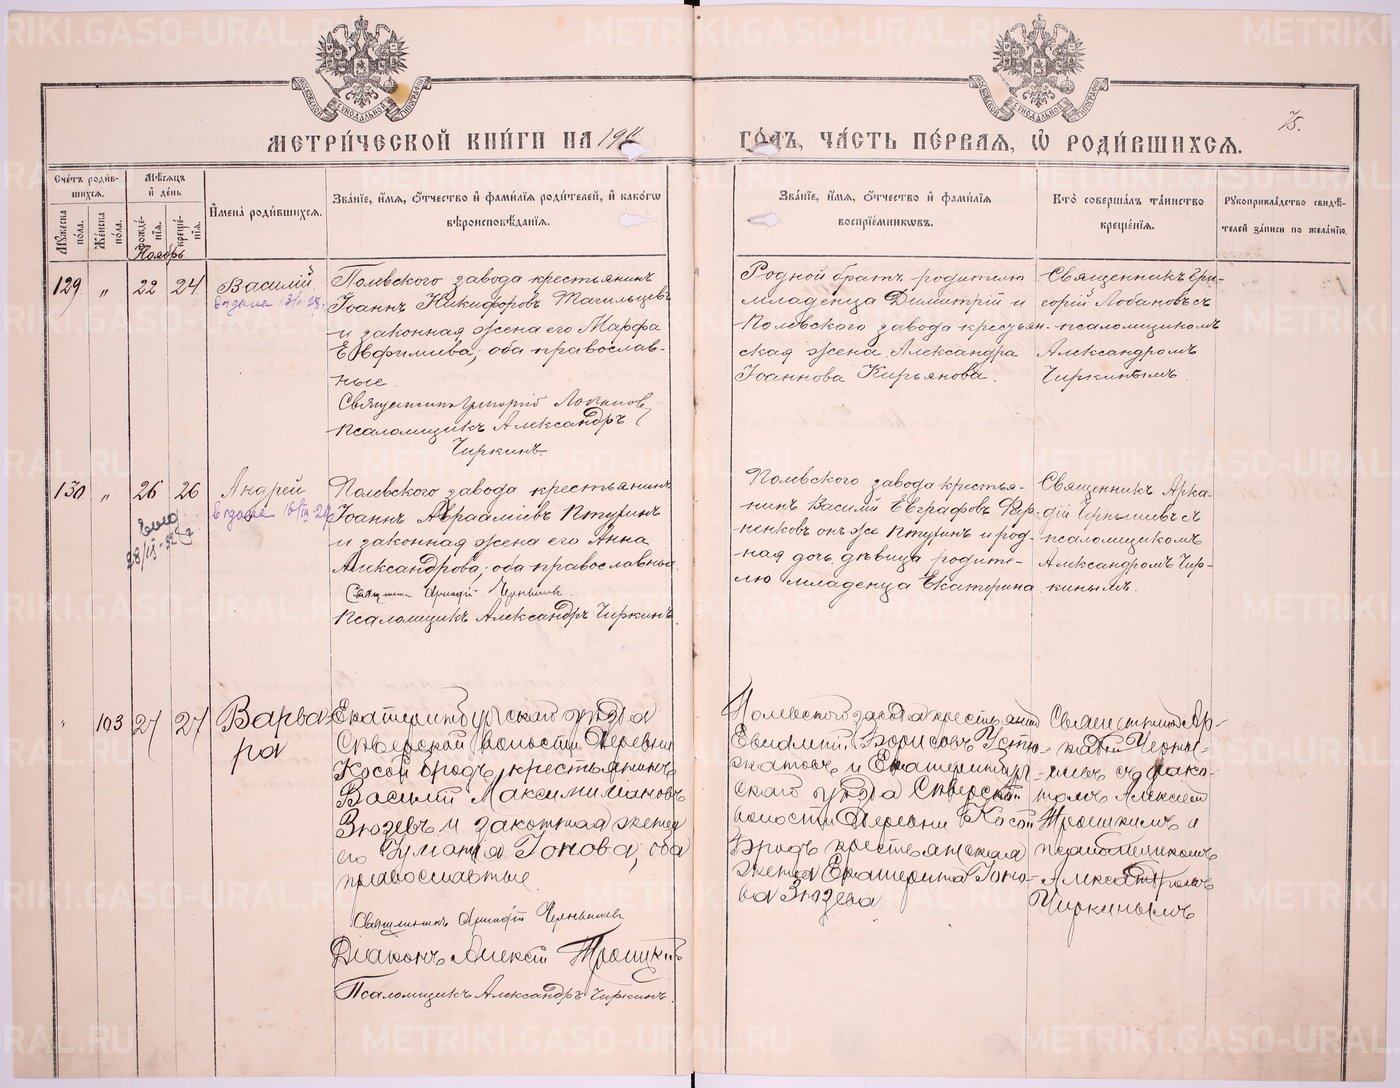 МЕТРИ́ЧЕСКОЙ КНИ́ГИ НА 1911 ГО́ДЪ, ЧА́СТЬ ПЕ́РВАЯ, Ѡ҆ РОДИ́ВШИХСЯ.
75.
Сче́тъ роди́вшихся.
Мꙋ́жеска по́ла.
Же́нска по́ла.
Мѣ́сяцъ и҆ де́нь
рожде́нїя.
креще́нїя.
И҆мена̀ роди́вшихся.
Зва́нїе, и҆́мя, ѻ҆́тчество и҆ фами́лїя роди́телей, и҆ како́гѡ вѣроисповѣ́данїя.
Зва́нїе, и҆́мя, ѻ҆́тчество и҆ фами́лїя воспрїе́мникѡвъ.
Кто̀ соверша́лъ та́инство креще́нїя.
Рꙋкоприкла́дство свидѣ́телей за́писи по жела́нїю.
Ноябрь
129 „ 22 24
Василий
Полевского завода крестьянинъ
Іоаннъ Никифоровъ Тагильцевъ
и законная жена его Марфа
Евфимиева, оба православ-
ные.
Священникъ Григорій Лобановъ
Псаломщикъ Александръ
Чиркинъ
Родной братъ родителю
младенца Димитрій и
Полевского завода крестьян-
ская жена Александра
Іоаннова Кирьянова.
Священникъ Гри-
горій Лобановъ съ
псаломщикомъ
Александромъ
Чиркинымъ.
130 „ 26 26
Андрей
Полевского завода крестьянинъ
Іоаннъ Авраамиевъ Птухинъ
и законная жена его Анна
Александрова, оба православные.
Священникъ Аркадій Чернышевъ
Псаломщикъ Александръ Чиркинъ.
Полевского завода крестья-
нинъ Василий Евграфовъ
онъ же Птухинъ и род-
ная дочь дѣвица родите-
лю младенца Екатерина
Священникъ Арка-
дій Чернышевъ съ
псаломщикомъ
Александромъ Чир-
кинымъ.
„ 103 27 27
Варва
ра
Екатеринбургскаго уѣзда
Сѣверской волости Деревни
Косой бродъ, крестьянинъ
Василій Максимиліановъ
Зюзевъ и законная жена
его Іонова, оба
православные.
Священникъ Аркадій Чернышевъ
Діаконъ Алексѣй Трошинъ
Псаломщикъ Александръ Чиркинъ.
Полевского завода крестьянинъ
Борисовъ
и Екатеринбург-
скаго уѣзда Сѣверской
волости Деревни Косой
Бродъ крестьянская
жена Екатерина Іоно-
ва Зюзева
Священникъ Ар-
кадій Черны-
шевъ съ діако-
номъ Алексѣемъ
Трошинымъ и
псаломщикомъ
Александромъ
Чиркинымъ
METRIKI.GASO-URAL.RU